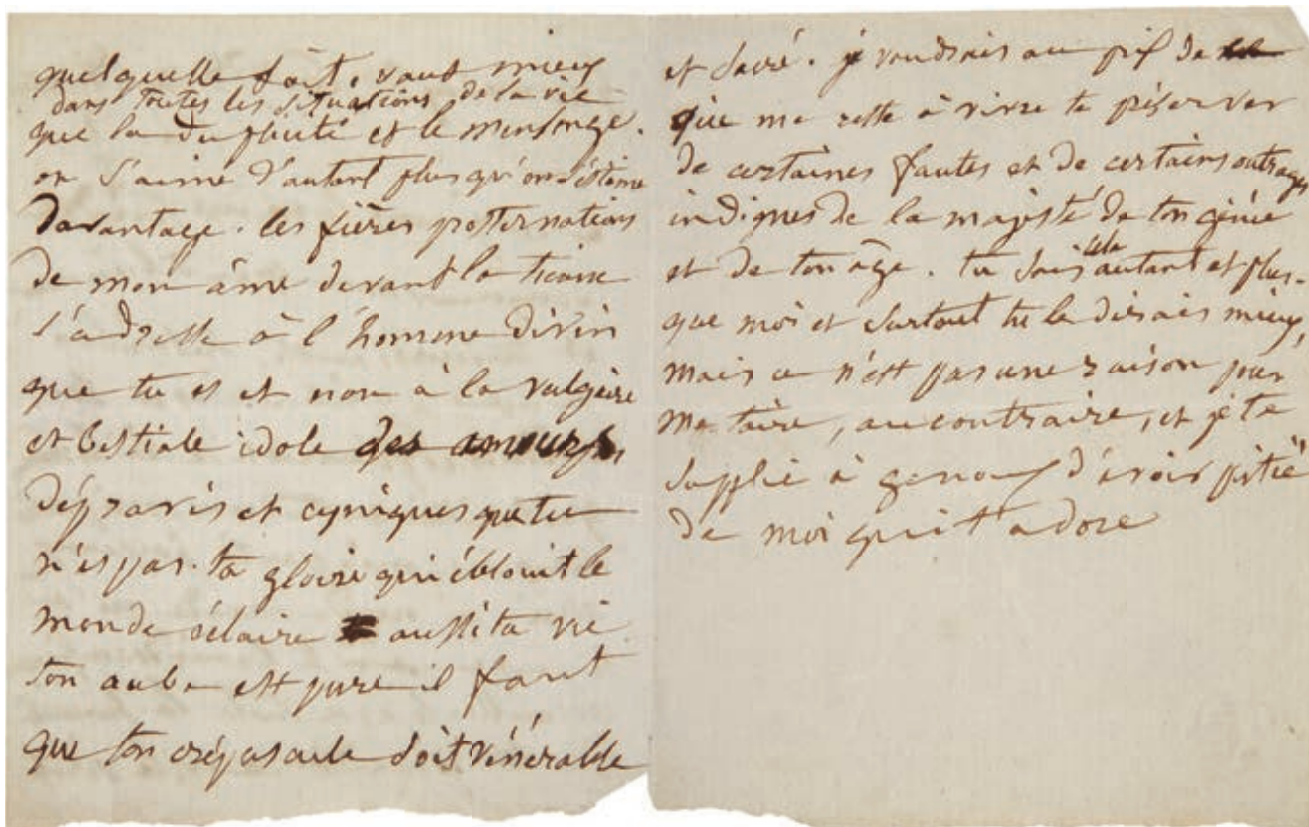 quelquelle soit, vaut mieux
dans toutes les situations de la vie
que la duplicité et le mensonge.
on s'aime d'autant plus qu'on s'estime
davantage. les fières prosternations
de mon âme devant la tienne
s'adresse à l'homme divin
que tu es et non à la vulgaire
et bestiale idole des amours
dépravés et cyniques que tu
n'es pas. ta gloire qui éblouit le
monde éclaire aussi ta vie.
ton aube est pure il faut
que ton crépuscule soit vénérable
et sacré. je voudrais au prix de
que me reste à vivre te préserver
de certaines fautes et de certains outrages
indignes de la majesté de ton génie
et de ton âge. tu sais cela autant et plus
que moi et surtout tu le dirais mieux,
mais ce n'est pas une raison pour
me taire, au contraire, et je te
supplie à genoux d'avoir pitié
de moi qui t'adore